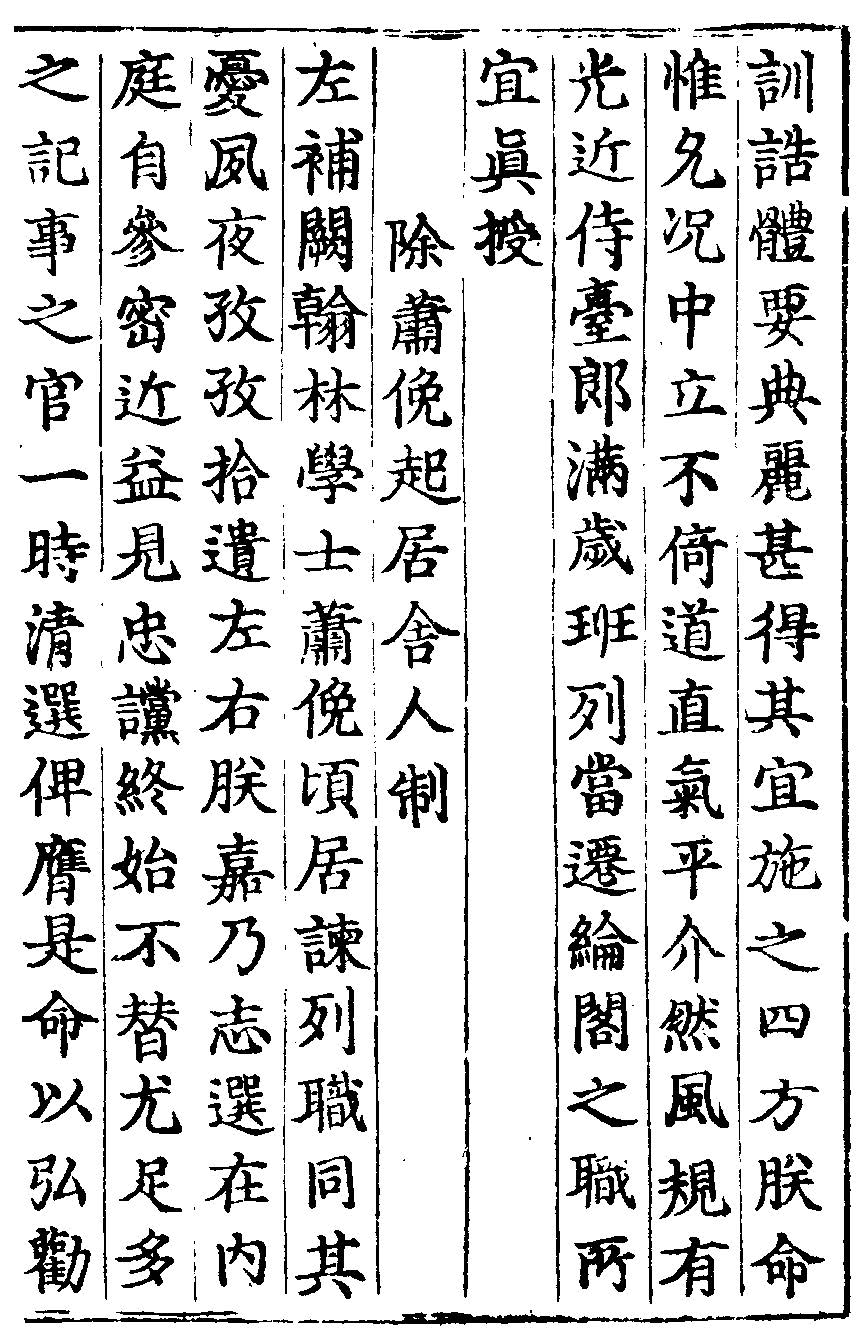 訓誥體要典麗甚得其宜施之四方朕命
惟允况中立不倚道直氣平介然風規有
光近侍臺郎滿歲班列當遷綸閣之職所
宜眞授
除蕭俛起居舍人制
左補闕翰林學士蕭俛頃居諫列職同其
憂夙夜孜孜拾遺左右朕嘉乃志選在內
庭自參密近益見忠讜終始不替尤足多
之記事之官一時清選俾膺是命以弘勸